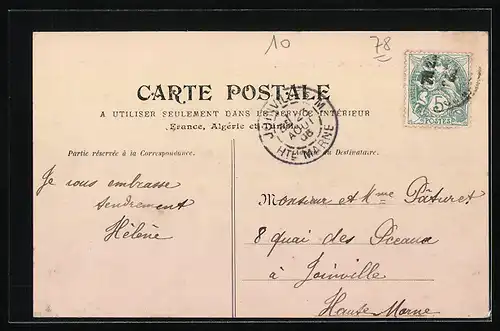 10
78
CARTE POSTALE
A UTILISER SEULEMENT DANS LE SERVICE INTÉRIEUR
France, Algérie et
Partie réservée à la Correspondance.
du Destinataire.
JOINVILLE
AOUT
08
HTE MARNE
5c
POSTES
Je vous embrasse
tendrement
Hélène
Monsieur et Mme Pâturet
8 quai des Peceaux
à Joinville
Haute Marne